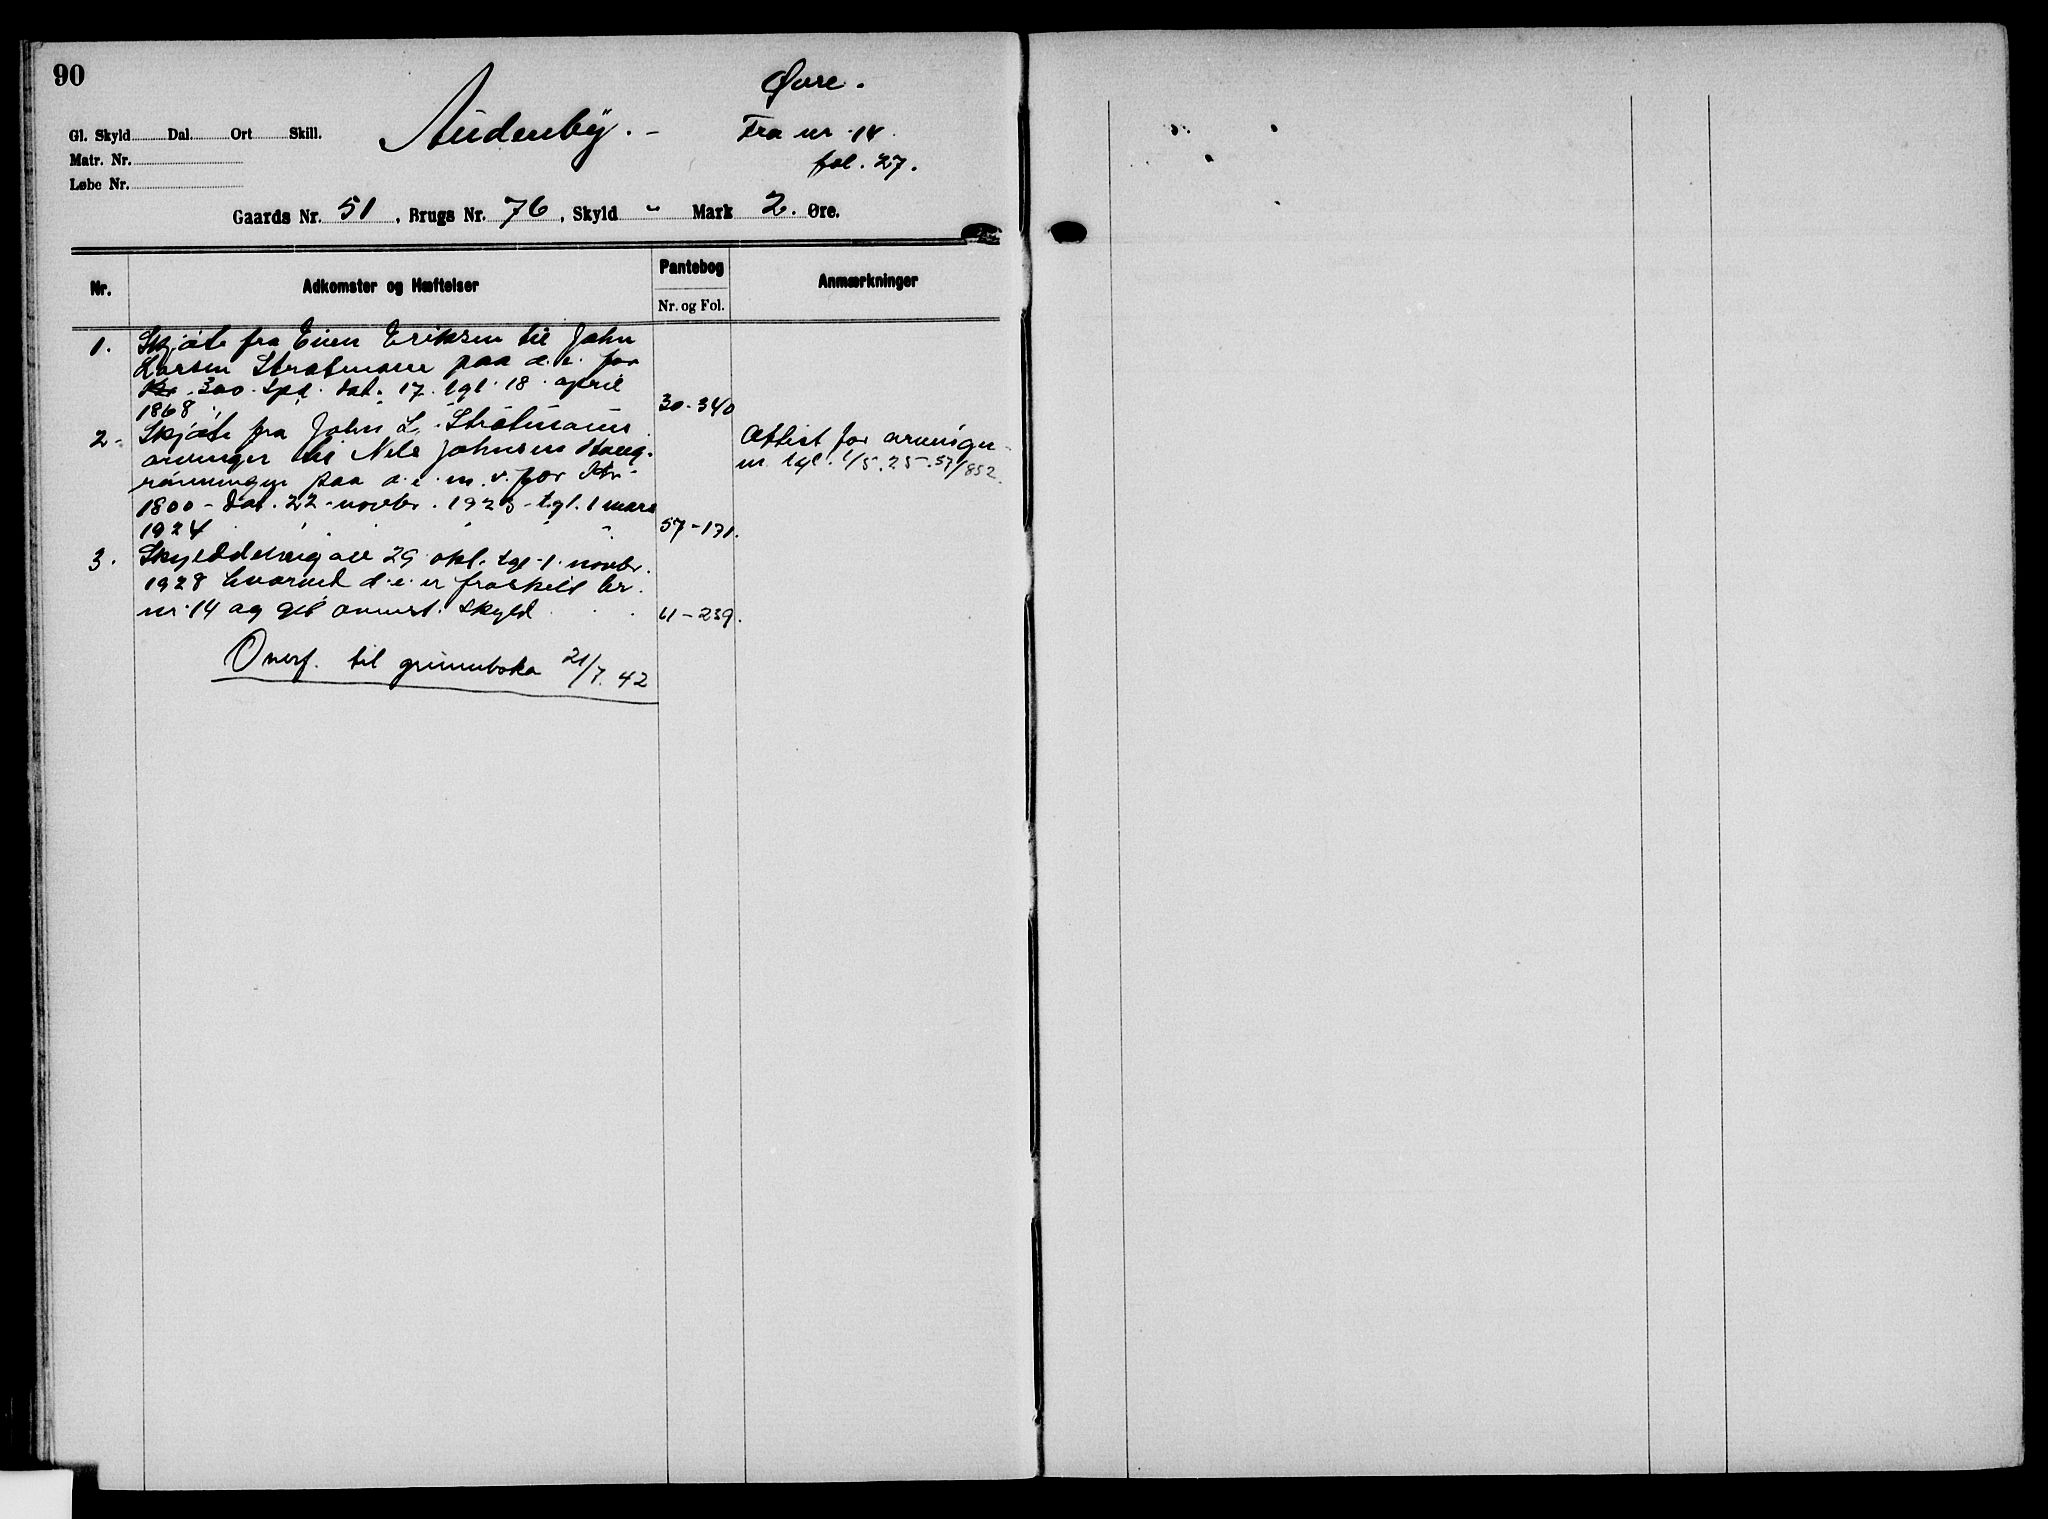 90
Øvre.
Audenby. -
Fra nr. 14
fol. 27.
Gl. Skyld Dal. Ort Skill.
Matr. Nr.
Løbe Nr.
Gaards Nr. 51, Brugs Nr. 76, Skyld " Mark 2. Øre.
Nr. Adkomster og Hæftelser Pantebog Anmærkninger
Nr. og Fol.
1. Skjøte fra Even Eriksen til John
Larsen Strøtmoen paa d. e. for
Kr. 300 Spd. dat. 17. tgl. 18. april
1868 30-340
2- Skjøte fra John L. Strøtmoens
arvinger til Nels Johnsen Haug-
rønningen paa d. e. m. v. for Kr
1800 - dat. 22 novbr. 1923 - tgl. 1 mars
1924 57-171.
Attest for arvinger
m. tgl. 1/5.25. 57/852.
3. Skylddeling av 29 okt. tgl. 1. novbr.
1928 hvorved d. e. er fraskilt br.
nr. 14 og git anmerk. skyld 61-239.
Overf. til grunnboka 21/7. 42